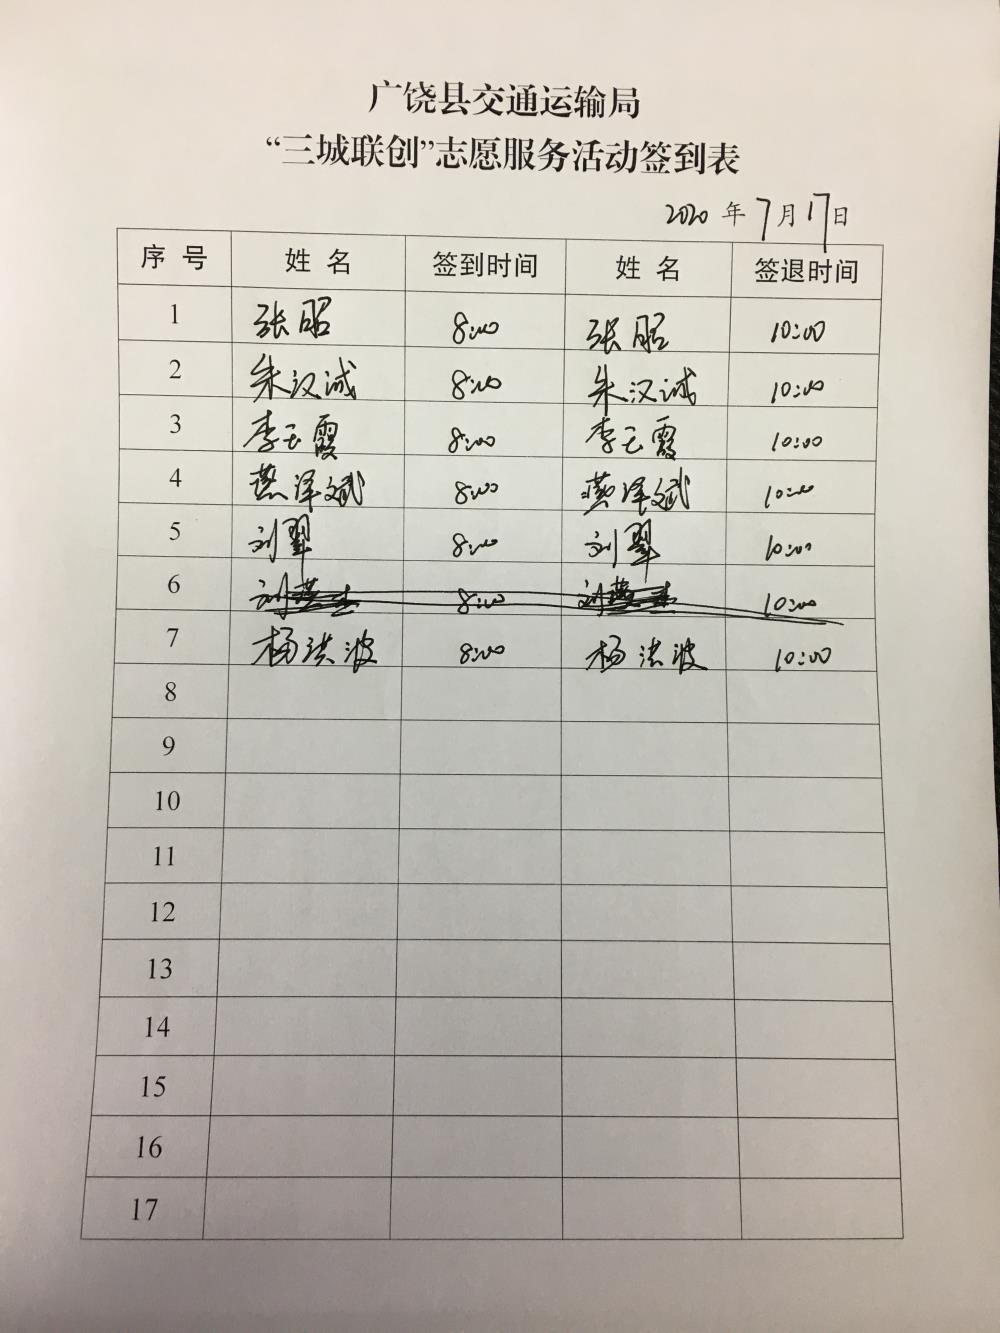 广饶县交通运输局
“三城联创”志愿服务活动签到表
2020 年 7 月 17 日
序号 姓名 签到时间 姓名 签退时间
1 张昭 8:00 张昭 10:00
2 朱汉诚 8:00 朱汉诚 10:00
3 李玉霞 8:00 李玉霞 10:00
4 燕泽斌 8:00 燕泽斌 10:00
5 刘翠 8:00 刘翠 10:00
6 刘 8:00 刘 10:00
7 杨洪波 8:00 杨洪波 10:00
8
9
10
11
12
13
14
15
16
17